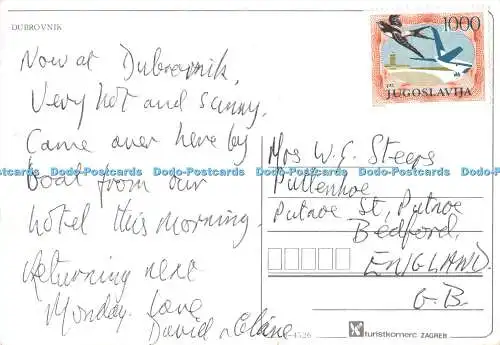 DUBROVNIK
Now at Dubrovnik,
Very hot and sunny.
Came over here by
boat from our
hotel this morning.
Returning next
Monday. Love
David
1000
JUGOSLAVIJA
Mrs W.G. Steeps
Putnoe St, Putnoe
Bedford,
ENGLAND.
G.B.
turistkomerc ZAGREB
Dodo-Postcards Dodo-Postcards Dodo-Postcards Dodo-Postcards Dodo-Postcards